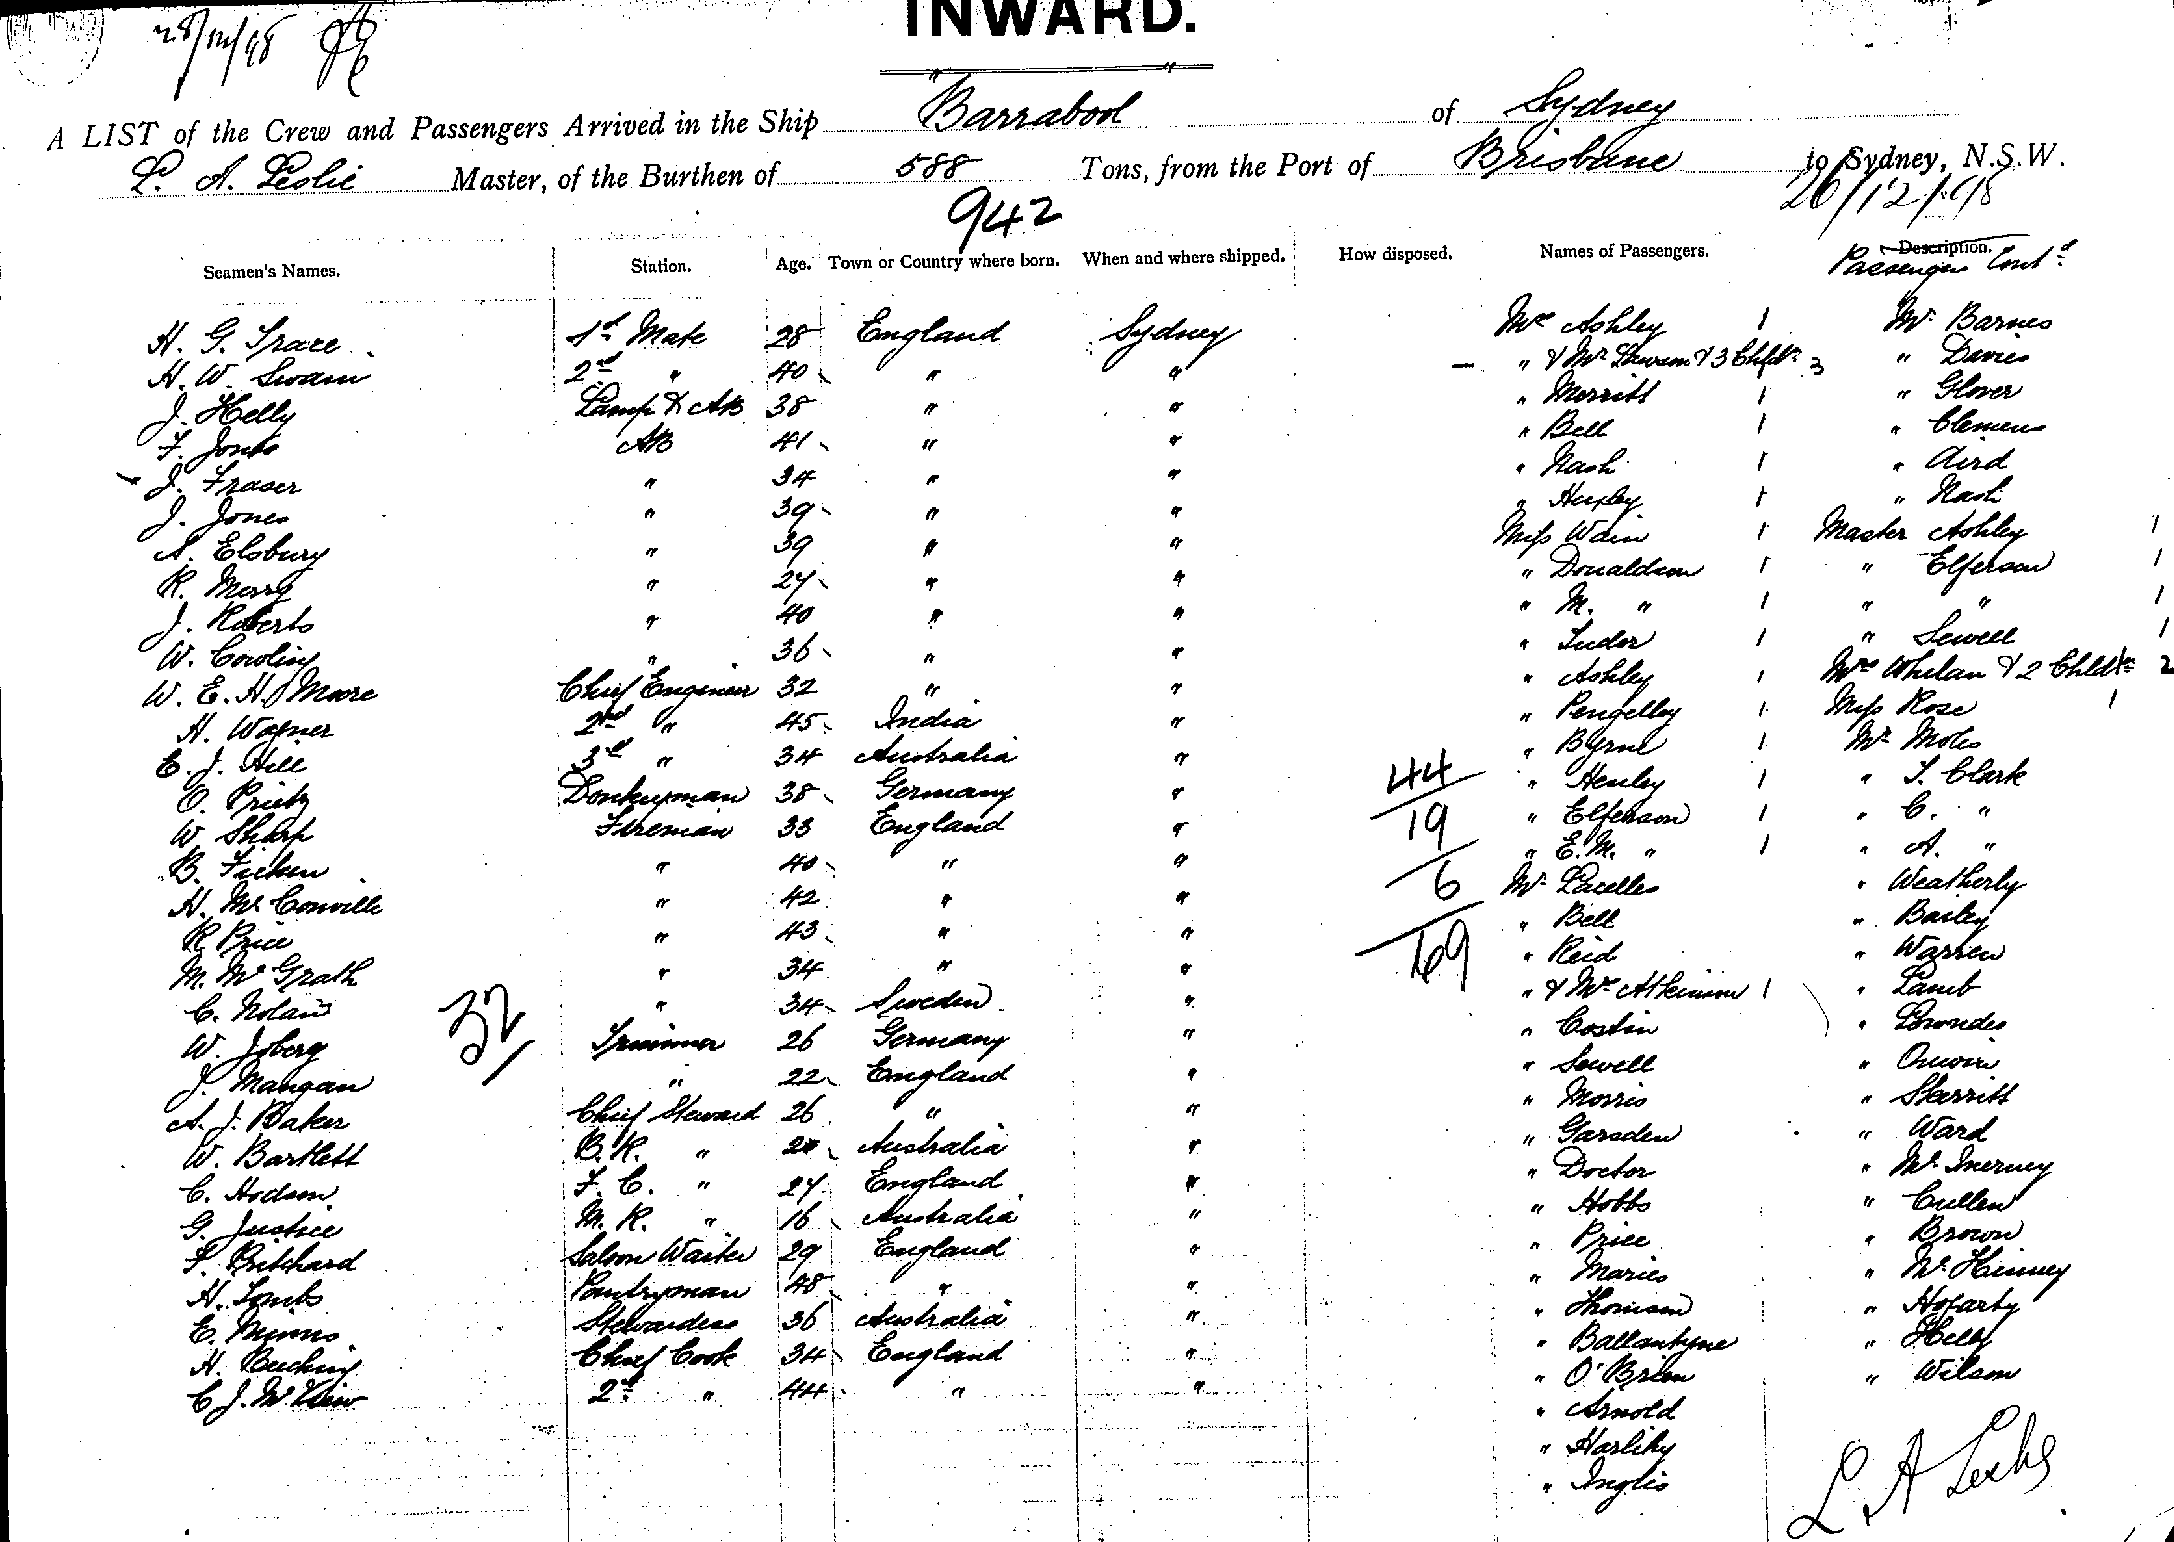 28/12/98
INWARD.
A LIST of the Crew and Passengers Arrived in the Ship Barrabool of Sydney
L. A. Leslie Master, of the Burthen of 588 Tons, from the Port of Brisbane to Sydney, N.S.W.
26/12/98
942
Seamen's Names. Station. Age. Town or Country where born. When and where shipped. How disposed. Names of Passengers. Description.
Passengers Contd
H. G. Trace 1st Mate 28 England Sydney Mrs Ashley 1 Mr Barnes
H. W. Swain 2nd " 40 " " " & Mr Lawson & 3 Chldn 3 " Davies
J. Helly Lamp & AB 38 " " " Merritt 1 " Glover
F. Jones AB 41 " " " Bell 1 " Clemens
J. Fraser " 34 " " " Nash 1 " Aird
J. Jones " 39 " " " Huxley 1 " Nash
A. Elsbury " 39 " " Miss Wain 1 Master Ashley 1
R. Merry " 27 " " " Donaldson 1 " Elferson 1
J. Roberts " 40 " " " M. " 1 " " 1
W. Cowling " 36 " " " Tudor 1 " Sewell 1
W. E. H. Moore Chief Engineer 32 " " " Ashley 1 Mrs Whelan & 2 Chldn 2
H. Wagner 2nd " 45 India " " Pengelley 1 Miss Rose 1
E. J. Hill 3rd " 34 Australia " " Byrne 1 Mr Moles
O. Prietz Donkeyman 38 Germany " 44 " Henley 1 " T. Clark
W. Sharp Fireman 33 England " 19 " Elferson 1 " C. "
B. Ficken " 40 " " " E. M. " 1 " A. "
H. McConville " 42 " " 6 Mr Lacelles " Weatherly
R. Price " 43 " " " Bell " Bailey
M. McGrath " 34 " " 69 " Reid " Warren
C. Nolan " 34 Sweden " " & Mrs Atkinson 1 " Lamb
32
W. Joberg Trimmer 26 Germany " " Costin " Lowndes
J. Mangan " 22 England " " Sewell "
A. J. Baker Chief Steward 26 " " " Morris " Sterritt
W. Bartlett B. R. " Australia " " Garsden " Ward
C. Hodson F. C. " 27 England " " Doctor " McInerney
G. Justice M. R. " 16 Australia " " Hobbs " Cullen
F. Pritchard Saloon Waiter 29 England " " Price " Brown
H. Tombs Pantryman 48 " " " Maries " McKinney
E. Munns Stewardess 36 Australia " " Thomson " Hogarty
H. Chief Cook 34 England " " Ballantyne " Helly
C. J. 2nd " 44 " " " O'Brien " Wilson
" Arnold
" Harlihy
" Inglis
L A Leslie